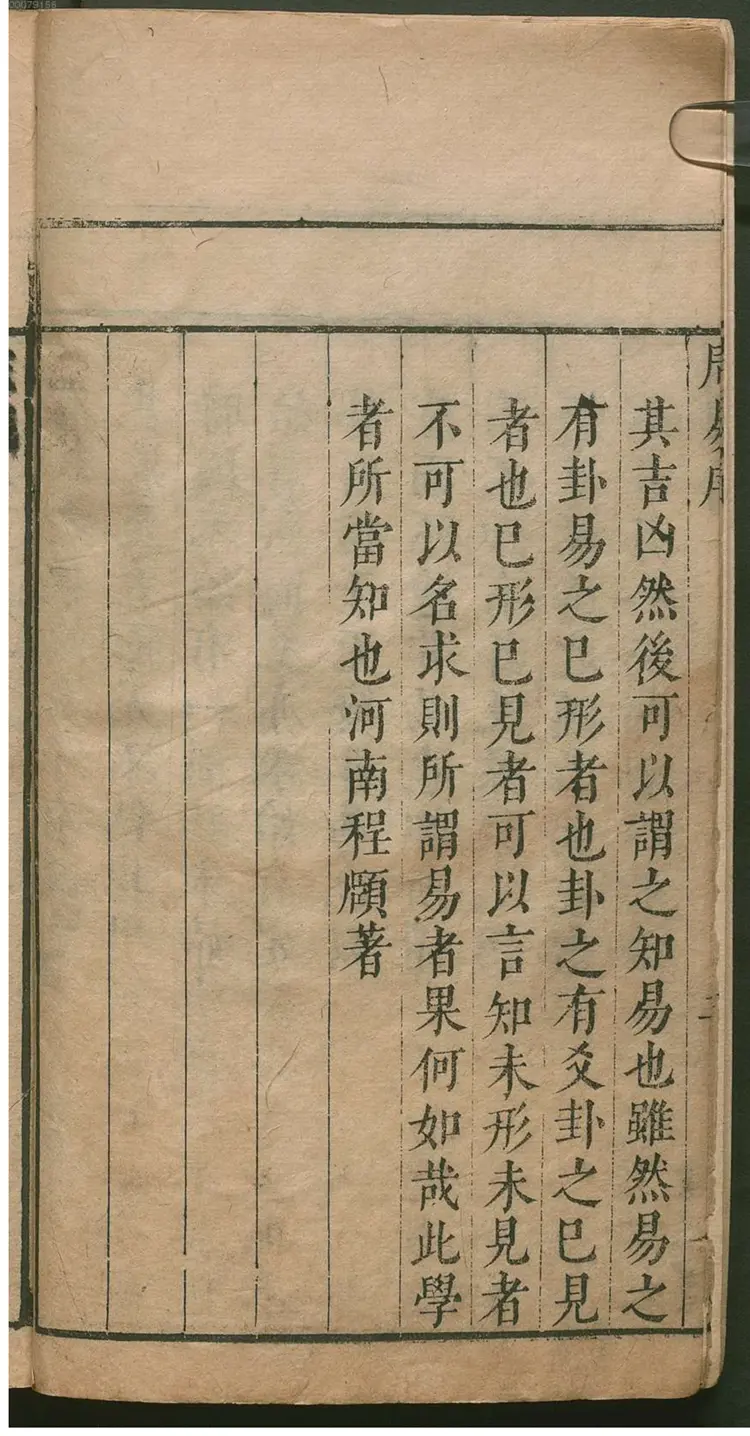 周易序
其吉凶然後可以謂之知易也雖然易之
有卦易之巳形者也卦之有爻卦之巳見
者也巳形巳見者可以言知未形未見者
不可以名求則所謂易者果何如哉此學
者所當知也河南程頤著
00079166